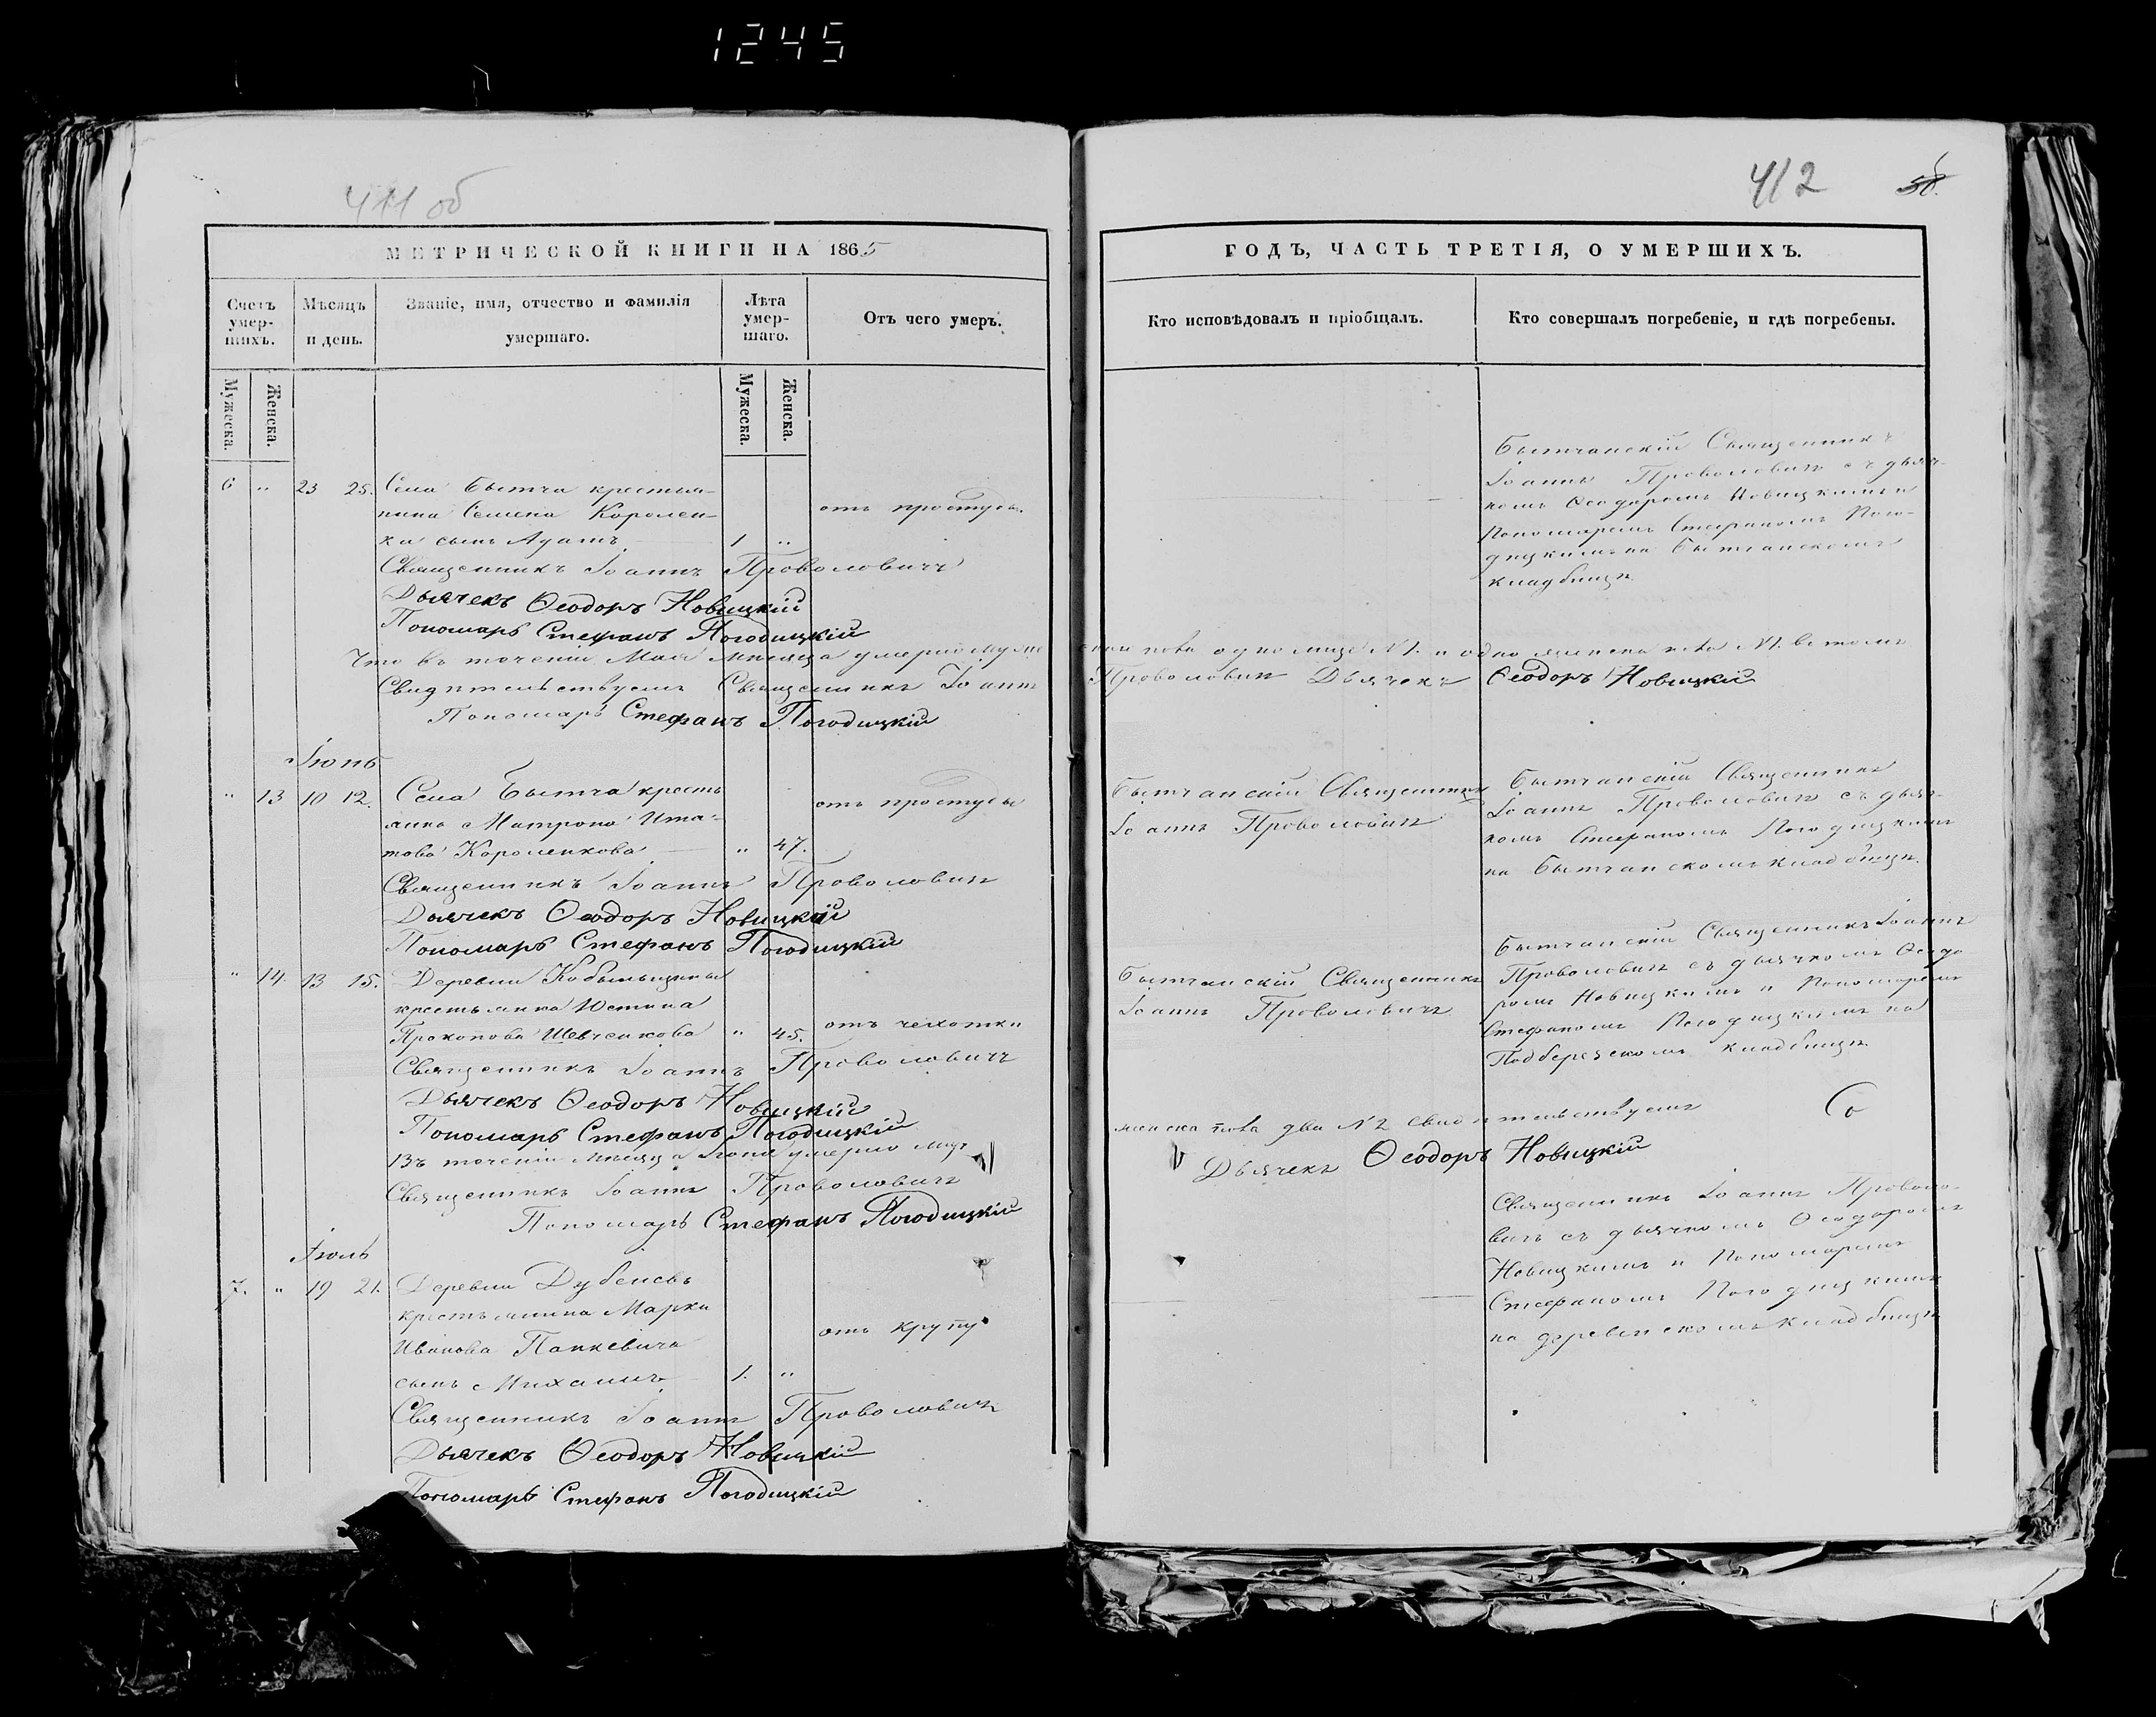 1245
411 об
МЕТРИЧЕСКОЙ КНИГИ НА 1865
Счетъ умер-шихъ.
Мѣсяцъ и день.
Званіе, имя, отчество и фамилія умершаго.
Лѣта умер-шаго.
Отъ чего умеръ.
Мужеска.
Женска.
Мужеска.
Женска.
6 " 23 25. Села Бытча крестья-
нина Семена Королен- отъ простуды.
ка сынъ Адамъ 1 "
Священникъ Іоаннъ Проволовичъ
Дьячекъ Ѳеодоръ Новицкій
Пономарь Стефанъ Погодицкій
Что въ теченіи Мая мѣсяца умерло муже
Свидѣтельствуемъ Священникъ Іоаннъ
Пономарь Стефанъ Погодицкій
Іюнь
" 13 10 12. Села Бытча кресть отъ простуды
янка Матрона Игна-
това Короленкова " 47.
Священникъ Іоаннъ Проволовичъ
Дьячекъ Ѳеодоръ Новицкій
Пономарь Стефанъ Погодицкій
" 14. 13 15. Деревни Кобыльщины
крестьянка Юстина
Прокопова Шевченкова " 45. отъ чехотки
Священникъ Іоаннъ Проволовичъ
Дьячекъ Ѳеодоръ Новицкій
Пономарь Стефанъ Погодицкій
Въ теченіи мѣсяца Іюня умерло
Священникъ Іоаннъ Проволовичъ
Пономарь Стефанъ Погодицкій
Іюль
7. " 19 21. Деревни
крестьянина Марка
Иванова Панкевича отъ крупу
сынъ Михаилъ 1. "
Священникъ Іоаннъ Проволовичъ
Дьячекъ Ѳеодоръ Новицкій
Пономарь Стефанъ Погодицкій
412
ГОДЪ, ЧАСТЬ ТРЕТІЯ, О УМЕРШИХЪ.
Кто исповѣдовалъ и пріобщалъ.
Кто совершалъ погребеніе, и гдѣ погребены.
Бытчанскій Священникъ
Іоаннъ Проволовичъ съ дьяч-
комъ Ѳеодоромъ Новицкимъ и
Пономаремъ Стефаномъ Пого-
дицкимъ на Бытчанскомъ
кладбищѣ
ска пола одно лице №1. и одно женска пола №1. въ томъ
Проволовичъ Дьячекъ Ѳеодоръ Новицкій
Бытчанскій Священникъ
Іоаннъ Проволовичъ
Бытчанскій Священникъ
Іоаннъ Проволовичъ съ дьяч-
комъ Стефаномъ Погодицкимъ
на Бытчанскомъ кладбищѣ.
Бытчанскій Священникъ
Іоаннъ Проволовичъ
Бытчанскій Священникъ Іоаннъ
Проволовичъ съ дьячкомъ Ѳеодо
ромъ Новицкимъ и Пономаремъ
Стефаномъ Погодицкимъ на
Подберезскомъ кладбищѣ
женска пола два №2 свидѣтельствуемъ
Дьячекъ Ѳеодоръ Новицкій
Священникъ Іоаннъ Проволо-
вичъ съ дьячкомъ Ѳеодоромъ
Новицкимъ и Пономаремъ
Стефаномъ Погодицкимъ
на деревенскомъ кладбищѣ